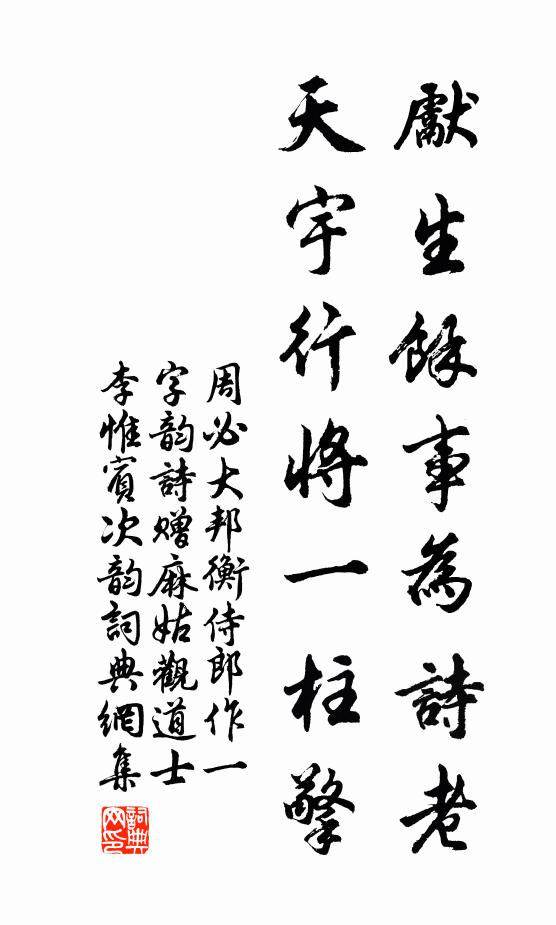 獻生餘事為詩老
天宇行將一柱擎
周必大邦衡侍郎作一
字韵詩贈麻姑觀道士
李惟賓次韵詞典網集
詞典
网印